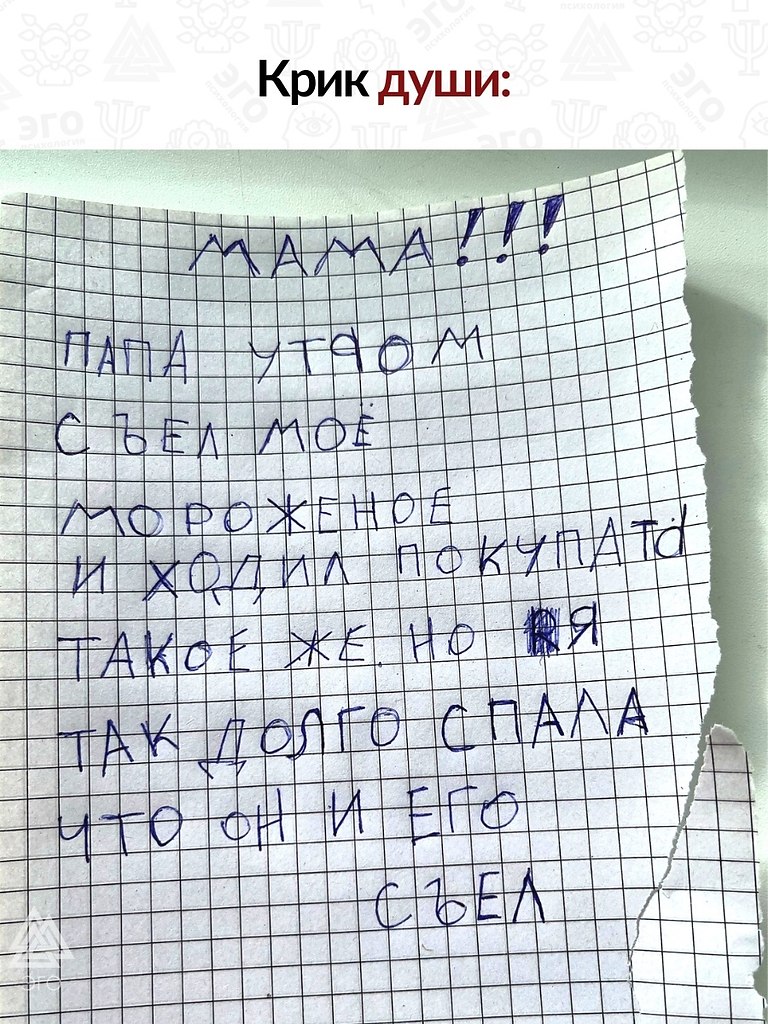 Крик души:
МАМА!!!
ПАПА УТРОМ
СЪЕЛ МОЁ
МОРОЖЕНОЕ
И ХОДИЛ ПОКУПАТЬ
ТАКОЕ ЖЕ НО Я
ТАК ДОЛГО СПАЛА
ЧТО ОН И ЕГО
СЪЕЛ
ЭГО